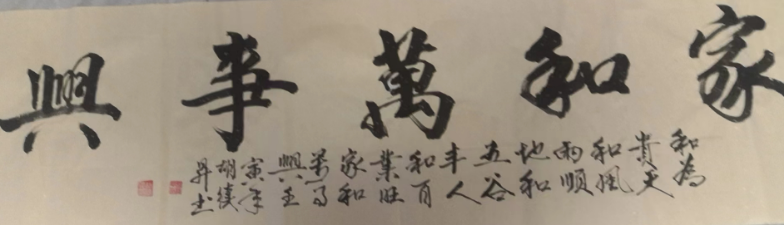 家和萬事興
和為
貴天
和風
雨順
地和
五谷
丰人
和百
業旺
家和
萬事
興壬
寅年
胡
昇书